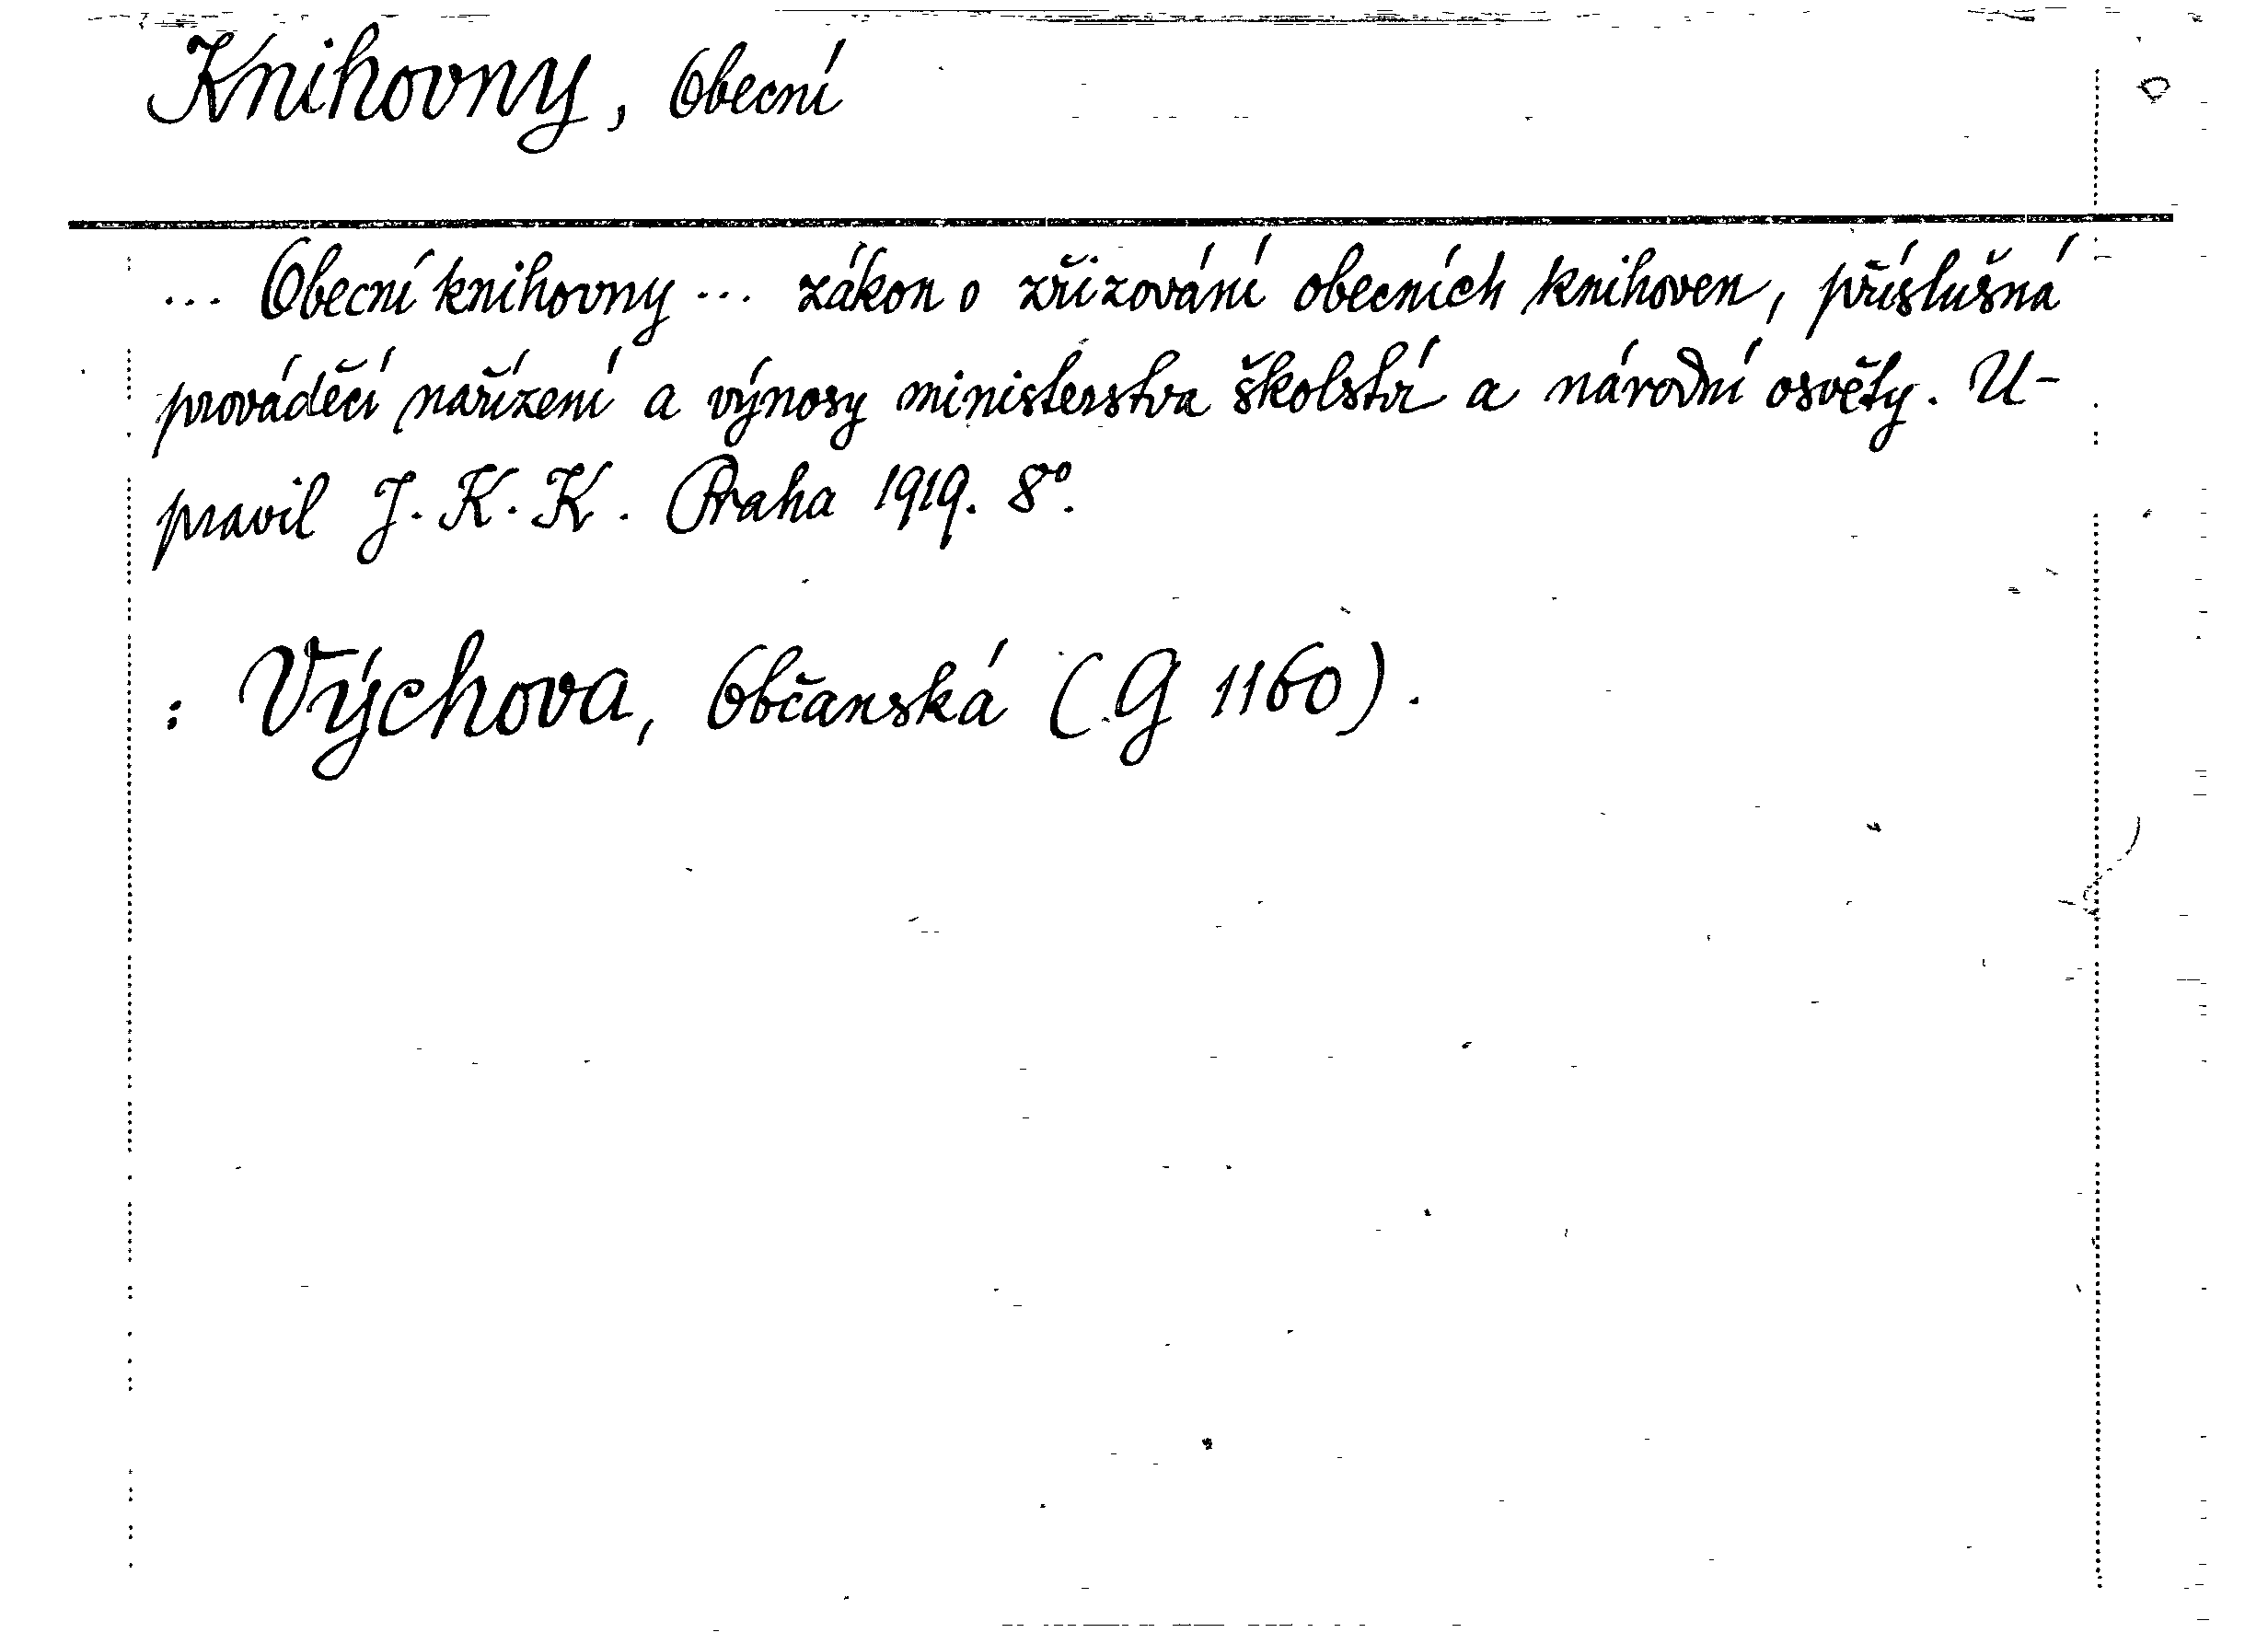 Knihovny, Obecní
... Obecní knihovny ... zákon o zřizování obecních knihoven, příslušná
prováděcí nařízení a výnosy ministerstva školství a národní osvěty. U-
pravil J. K. K. Praha 1919. 8°.
: Výchova, Občanská (G 1160).